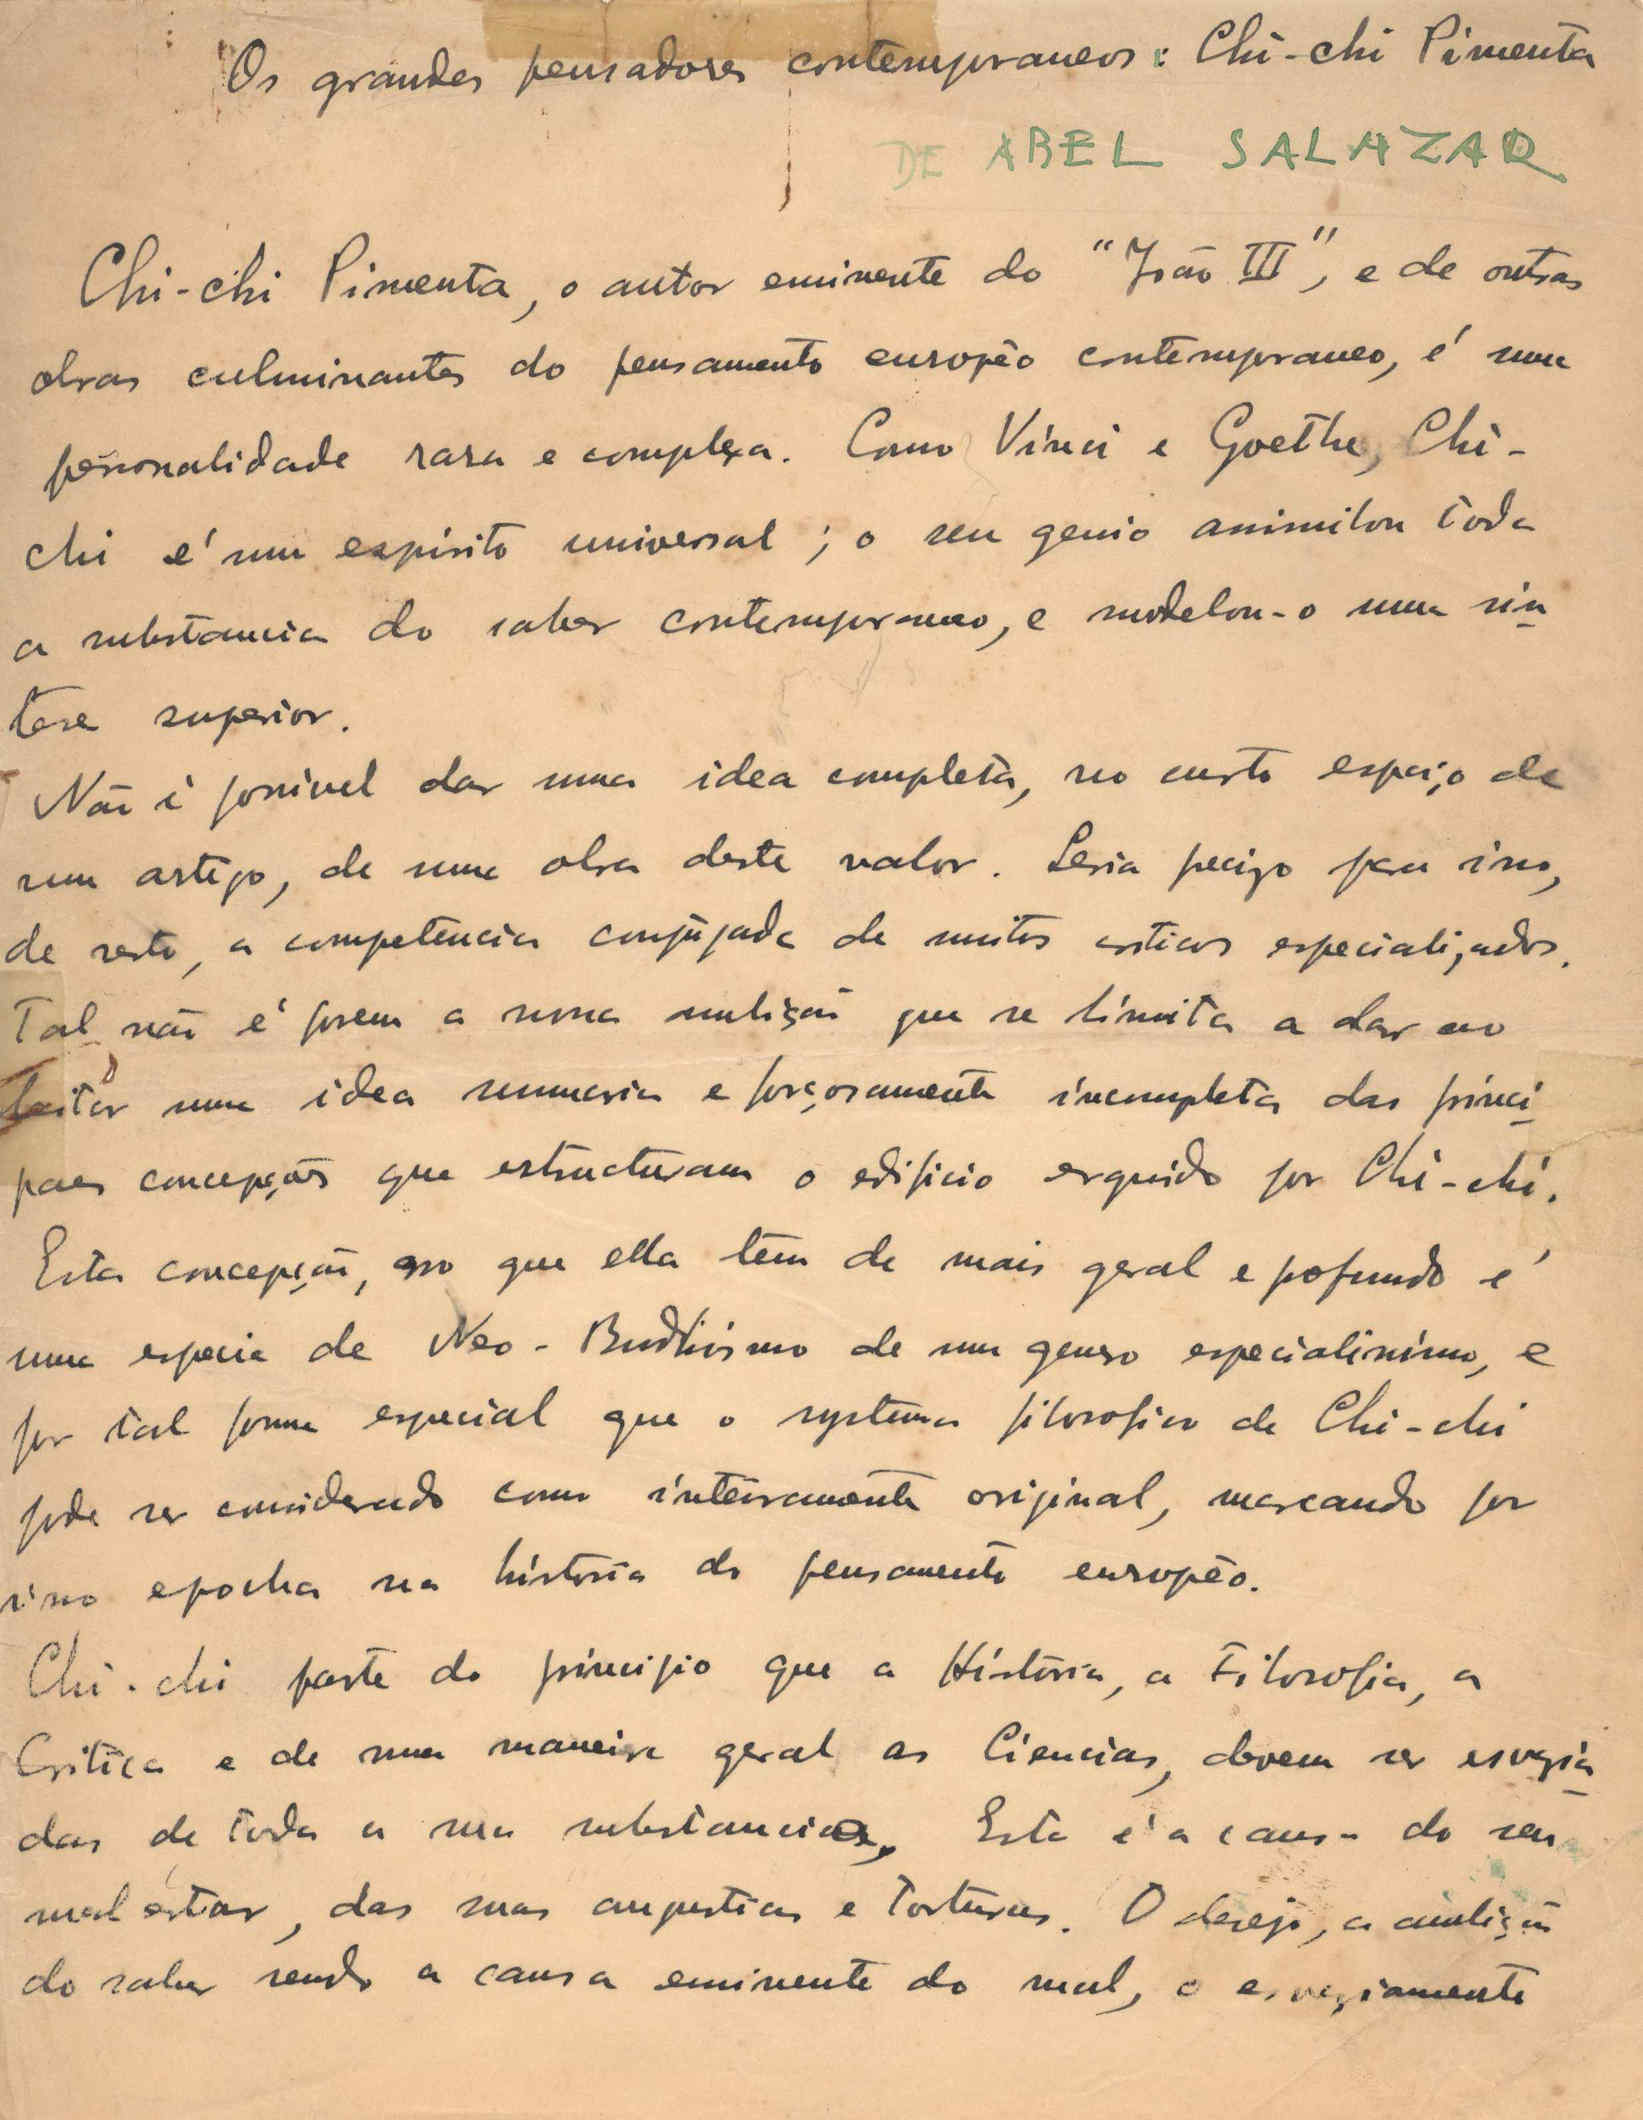 Os grandes pensadores contemporaneos: Chi-chi Pimenta
DE ABEL SALAZAR
Chi-chi Pimenta, o autor eminente do "João III", e de outras
obras culminantes do pensamento europêo contemporaneo, é uma
personalidade rara e complexa. Como Vinci e Goethe, Chi-
chi é um espirito universal; o seu genio assimilou toda
a substancia do saber contemporaneo, e modelou-o numa sin
tese superior.
Não é possivel dar uma idea completa, no curto espaço de
um artigo, de uma obra deste valor. Seria preciso para isso,
de resto, a competencia conjugada de muitos criticos especializados.
Tal não é porem a nossa ambição que se limita a dar ao
leitor uma idea summaria e forçosamente incompleta das princi
paes concepções que estructuram o edificio erguido por Chi-chi.
Esta concepção, no que ella tem de mais geral e profundo é
uma especie de Neo-Budhismo de um genero especialissimo, e
por tal forma especial que o systema filosofico de Chi-chi
pode ser considerado como inteiramente original, marcando por
isso epocha na história do pensamento europêo.
Chi-chi parte do principio que a História, a Filosofia, a
Critica e de uma maneira geral as Ciencias, devem ser esvazia
das de toda a sua substancia. Esta é a causa do seu
mal estar, das suas angustias e torturas. O desejo, a ambição
do saber sendo a causa eminente do mal, o esvaziamento